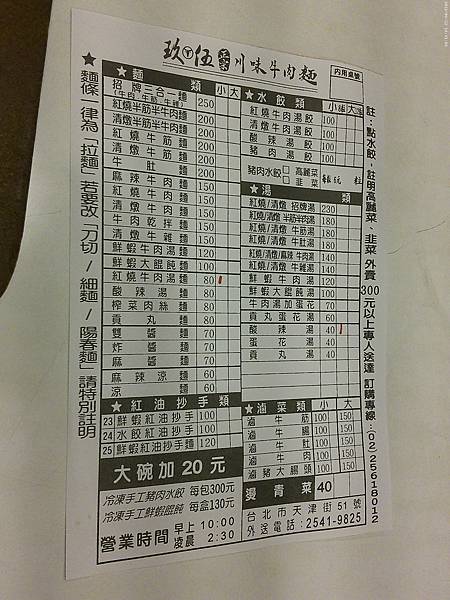 玖伍正宗川味牛肉麵
內用桌號
★麵條一律為「拉麵」若要改「刀切/細麵/陽春麵」請特別註明
★麵類 小 大
招牌三合一麵(牛肉、牛筋、牛雜) 250
紅燒半筋半肉麵 200
清燉半筋半肉麵 200
紅燒牛筋麵 200
清燉牛筋麵 200
牛肚麵 200
麻辣牛肉麵 150
紅燒牛肉麵 150
清燉牛肉麵 150
牛肉乾拌麵 150
清燉牛雜麵 150
鮮蝦牛肉湯麵 120
鮮蝦大餛飩麵 100
紅燒牛肉湯麵 80
酸辣湯麵 80
榨菜肉絲麵 80
貢丸麵 80
雙醬麵 70
炸醬麵 70
麻醬麵 70
麻辣涼麵 60
涼麵 60
★紅油抄手類
23 鮮蝦紅油抄手 100
24 水餃紅油抄手 100
25 鮮蝦紅油抄手麵 120
大碗加20元
冷凍手工豬肉水餃 每包300元
冷凍手工鮮蝦餛飩 每盒130元
營業時間 早上 10:00
凌晨 2:30
★水餃類 小 大
紅燒牛肉湯餃 100
清燉牛肉湯餃 100
酸辣湯餃 100
豬肉湯餃 100
豬肉水餃 □高麗菜 □韭菜 每玩 粒
★湯類
紅燒/清燉 招牌湯 230
紅燒/清燉 半筋半肉湯 180
紅燒/清燉 牛筋湯 180
紅燒/清燉 牛肚湯 180
紅燒/清燉/麻辣 牛肉湯 140
紅燒/清燉 牛雜湯 140
鮮蝦牛肉湯 120
鮮蝦大餛飩湯 100
牛肉湯加蛋花 70
貢丸蛋花湯 60
酸辣湯 40
蛋花湯 40
貢丸湯 40
★滷菜類 小 大
滷牛筋 100 150
滷牛腸 100 150
滷牛肚 100 150
滷牛肉 100 150
滷豬大腸頭 100 150
燙青菜 40
台北市天津街51號
外送電話：2541-9825
註：點水餃，註明高麗菜、韭菜 外賣300元以上專人送達 訂購專線：(02)25618012